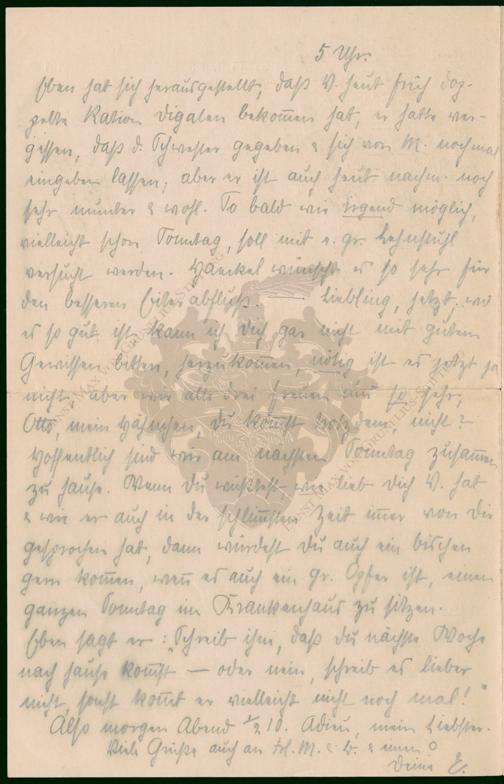 5 Uhr.
Eben hat sich herausgestellt, daß V. heut früh dop-
pelte Ration Digalen bekommen hat, er hatte ver-
gessen, daß d. Schwester gegeben & sich von M. nochmal
eingeben lassen; aber er ist auch heut nachm. noch
sehr munter & wohl. So bald wie irgend möglich,
vielleicht schon Sonntag, soll mit e. gr. Lehnstuhl
versucht werden. Haeckel wünscht es so sehr für
den besseren Eiterabfluß. — Liebling, jetzt, wo
es so gut ist kann ich Dich gar nicht mit gutem
Gewissen bitten, herzukommen, nötig ist es jetzt ja
nicht, aber wir alle drei freuen uns so sehr,
Otto, mein Hähnchen, Du kommst trotzdem, nicht?
Hoffentlich sind wir am nächsten Sonntag zusammen
zu Hause. Wenn Du wüßtest wie lieb Dich V. hat
& wie er auch in der schlimmsten Zeit immer von Dir
gesprochen hat, dann würdest Du auch ein bischen
gern kommen, wenn es auch ein gr. Opfer ist, einen
ganzen Sonntag im Krankenhaus zu sitzen.
Eben sagt er: "Schreib ihm, daß Du nächste Woche
nach Hause kommst — oder nein, schreib es lieber
nicht, sonst kommt er vielleicht nicht noch mal!"
Also morgen Abend ½ 10. Adieu, mein Liebster.
Viele Grüße auch an Frl. M. &
Deine E.